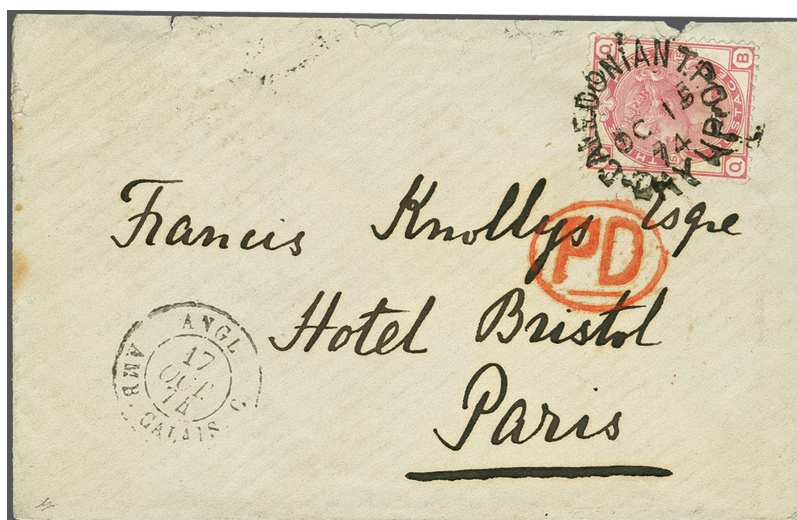 CALEDONIAN T.P.O.
DAY UP
OC 15
74
Q B
Q
Francis Knollys Esqre
PD
Hotel Bristol
Paris
ANGL
AMB. CALAIS
17
OCT
74